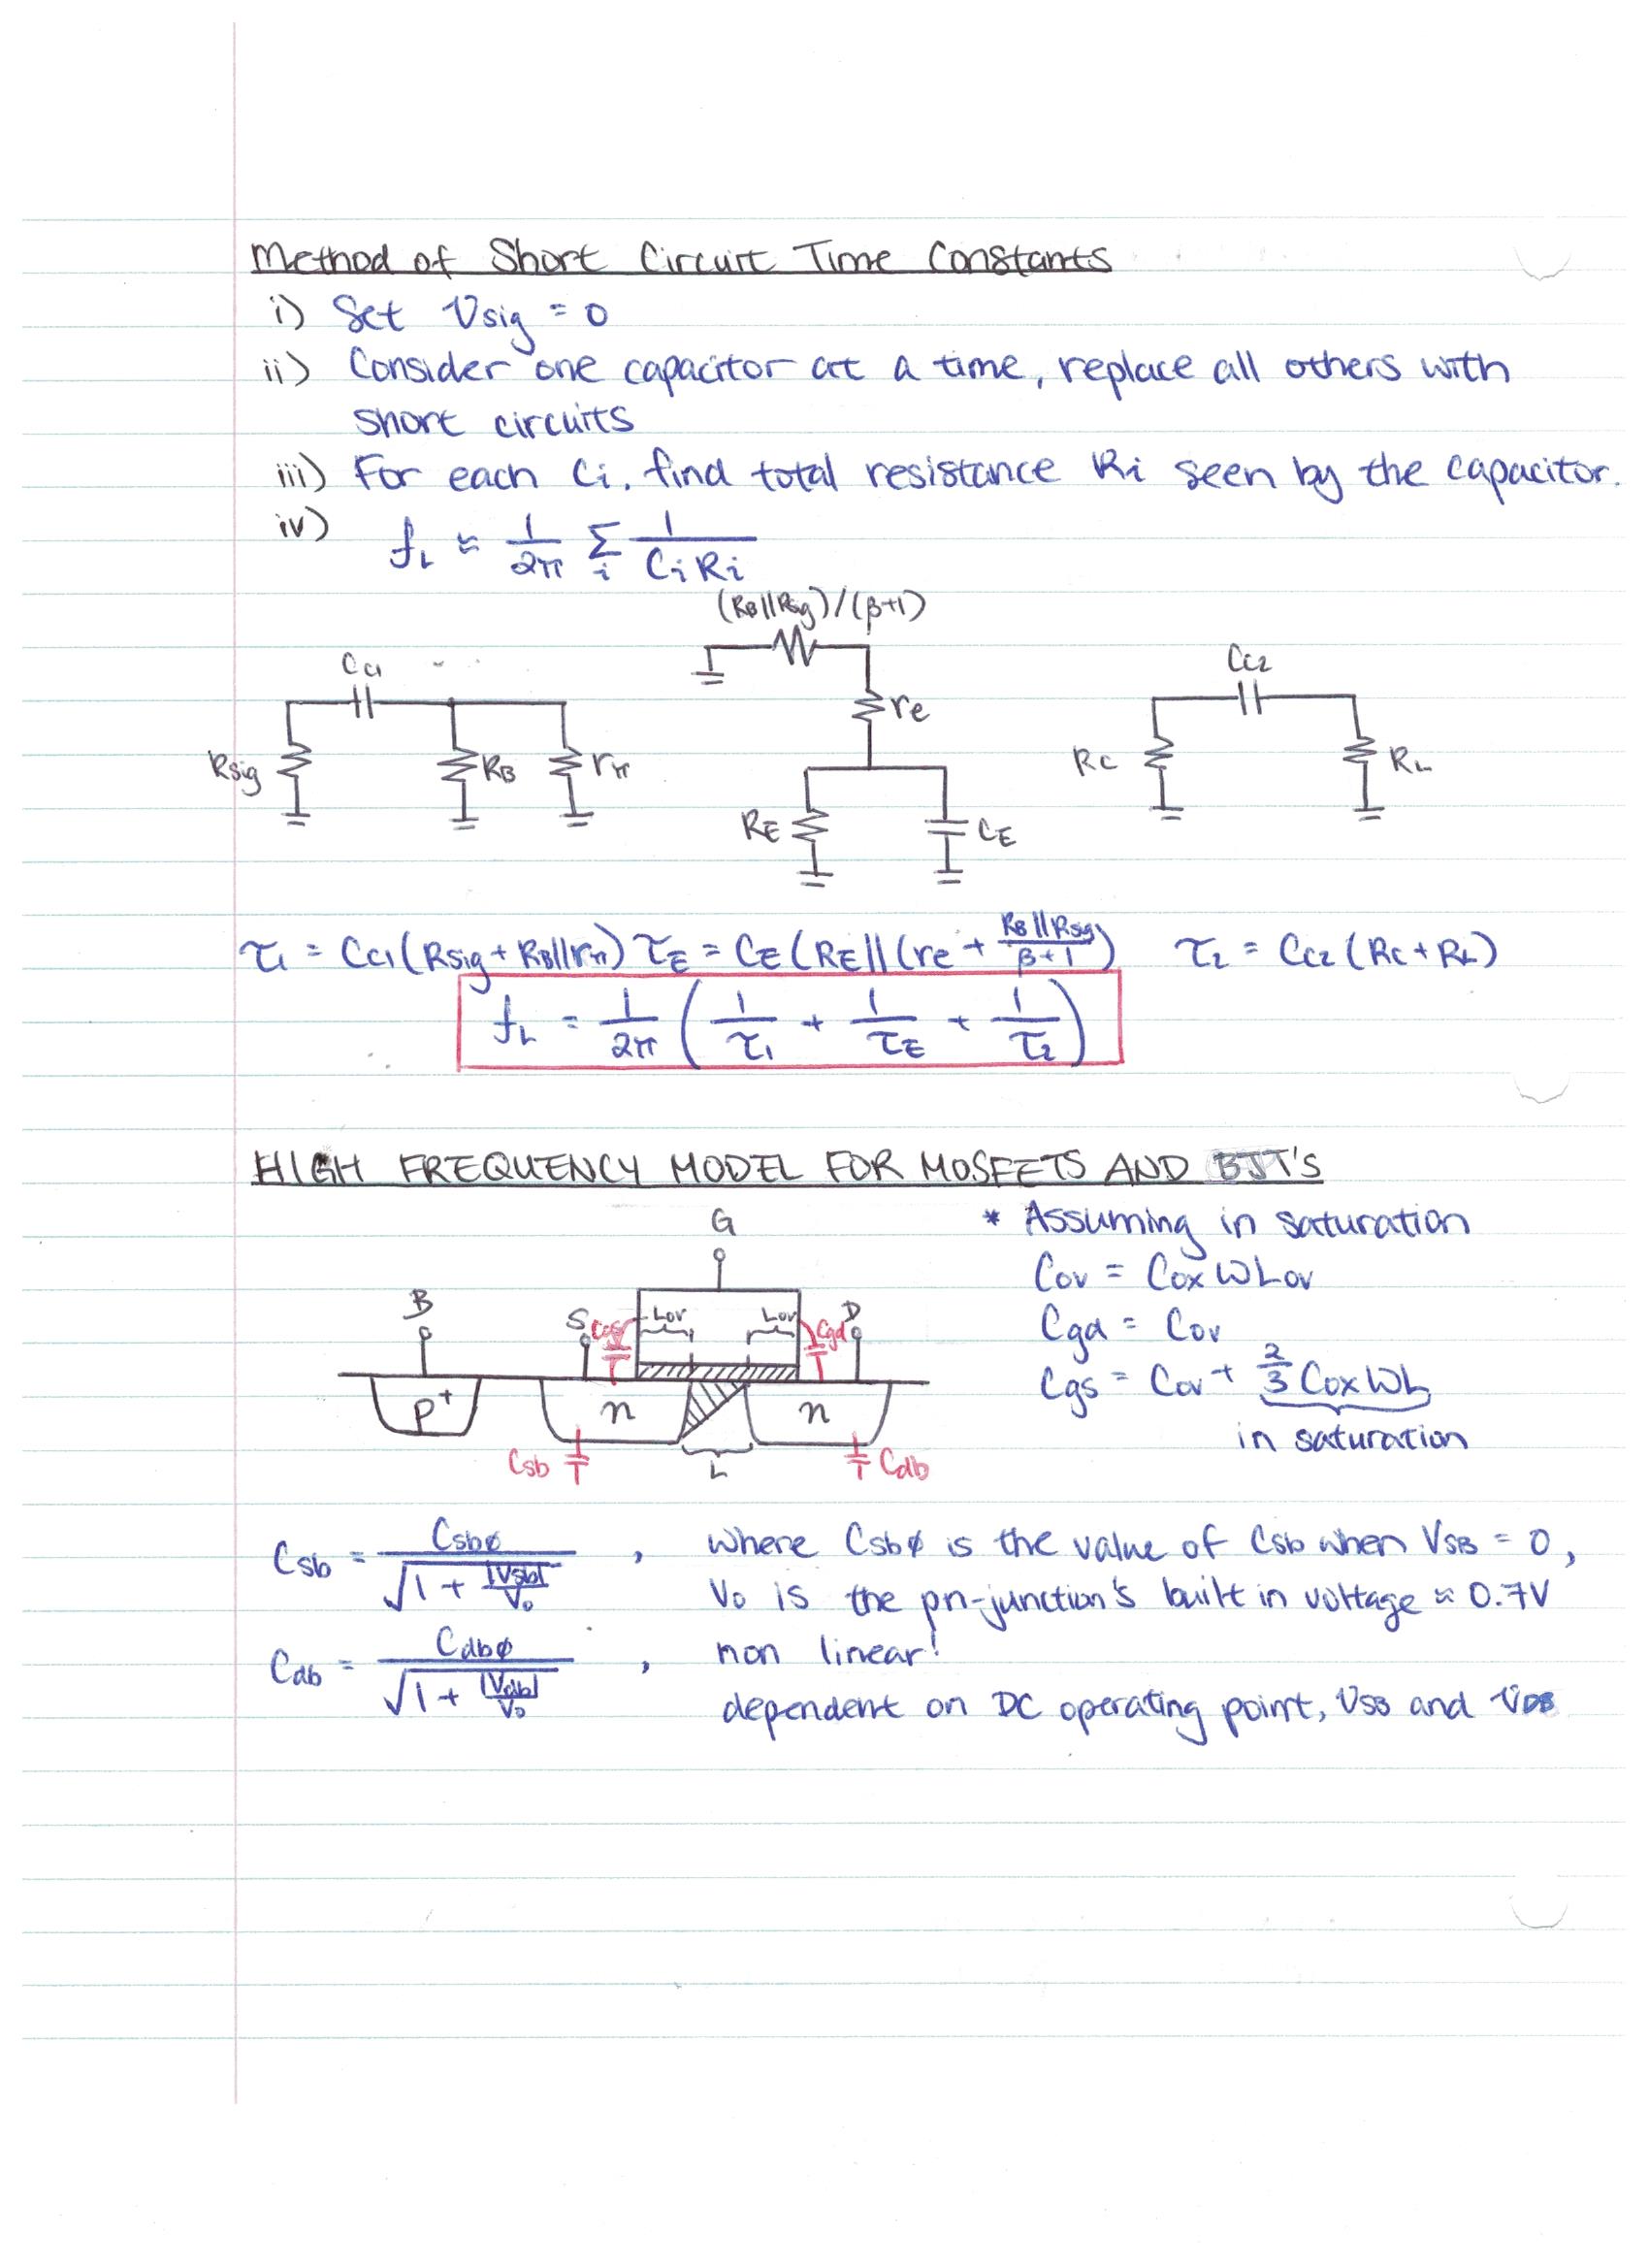 Method of Short Circuit Time Constants
i) Set Vsig = 0
ii) Consider one capacitor at a time, replace all others with
short circuits
iii) For each Ci, find total resistance Ri seen by the capacitor.
iv) fL ≈ 1/2π Σi 1/CiRi
(RB||Rsig)/(β+1)
CC1
CC2
re
Rsig
RB
rπ
RC
RL
RE
CE
τ1 = CC1(Rsig+RB||rπ) τE = CE(RE||(re + RB||Rsig/β+1) τ2 = CC2(RC+RL)
fL = 1/2π (1/τ1 + 1/τE + 1/τ2)
HIGH FREQUENCY MODEL FOR MOSFETS AND BJT'S
G
* Assuming in saturation
Cov = Cox W Lov
B
S
Cgs
Lov
Lov
Cgd
D
Cgd = Cov
Cgs = Cov + 2/3 Cox WL
p+
n
n
in saturation
Csb
L
Cdb
Csb = Csbø/√1 + |Vsb|/Vo , where Csbø is the value of Csb when VSB = 0,
Vo is the pn-junction's built in voltage ≈ 0.7V
Cdb = Cdbø/√1 + |Vdb|/Vo , non linear!
dependent on DC operating point, VSB and VDB